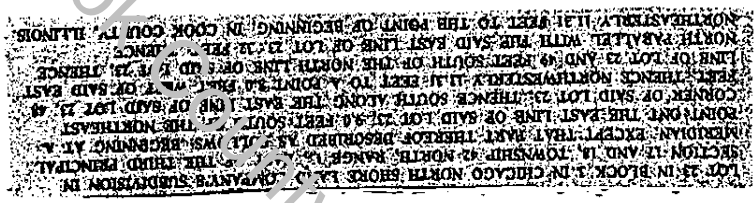 LOT 23 IN BLOCK 3 IN CHICAGO NORTH SHORE LAND COMPANY'S SUBDIVISION IN
SECTION 17 AND 18, TOWNSHIP 42 NORTH, RANGE 13, OF THE THIRD PRINCIPAL
MERIDIAN, EXCEPT THAT PART THEREOF DESCRIBED AS FOLLOWS: BEGINNING AT A
POINT ONT THE EAST LINE OF SAID LOT 23, 9.0 FEET SOUTH OF THE NORTHEAST
CORNER OF SAID LOT 23; THENCE SOUTH ALONG THE EAST LINE OF SAID LOT 23, 48
FEET; THENCE NORTHWESTERLY 11.31 FEET TO A POINT 8.0 FEET WEST OF SAID EAST
LINE OF LOT 23 AND 49 FEET SOUTH OF THE NORTH LINE OF SAID LOT 23; THENCE
NORTH PARALLEL WITH THE SAID EAST LINE OF LOT 23, 32 FEET; THENCE
NORTHEASTERLY 11.31 FEET TO THE POINT OF BEGINNING, IN COOK COUNTY, ILLINOIS
County